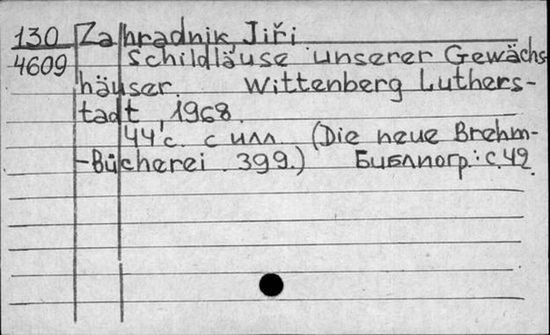 130 Zahradnik, Jiři
4609 Schildläuse unserer Gewächs
häuser. Wittenberg Luthers-
tadt, 1968.
44 с. с илл. (Die neue Brehm-
-Bücherei. 399.) Библиогр.: с. 42.